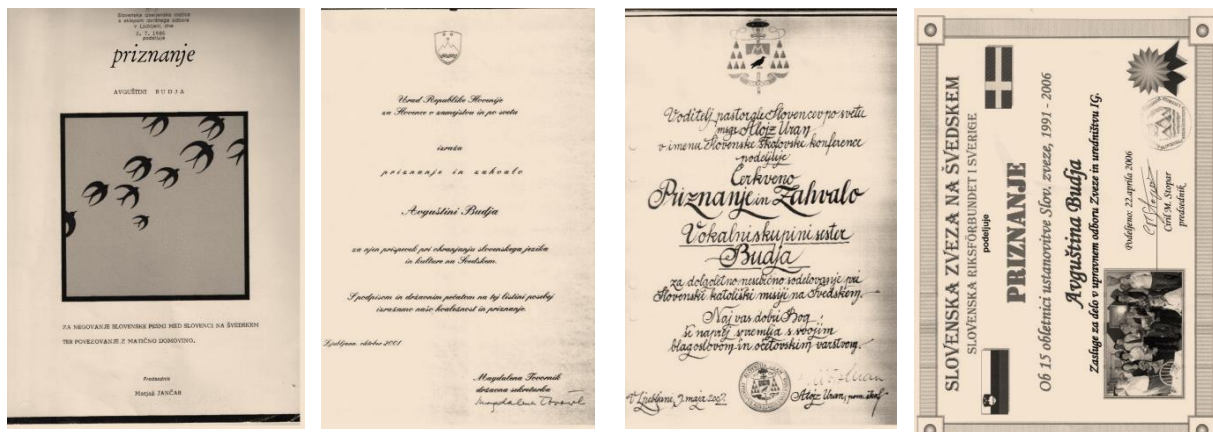 Slovenska izseljenska matica
v Ljubljani, dne
2. 7. 1986
podeljuje
priznanje
AVGUŠTINI BUDJA
ZA NEGOVANJE SLOVENSKE PESMI MED SLOVENCI NA ŠVEDSKEM
TER POVEZOVANJE Z MATIČNO DOMOVINO.
Predsednik
Matjaž JANČAR
Urad Republike Slovenije
za Slovence v zamejstvu in po svetu
izraža
priznanje in zahvalo
Avguštini Budja
za njen prispevek pri ohranjanju slovenskega jezika
in kulture na Švedskem.
S podpisom in državnim pečatom na tej listini posebej
izražamo našo hvaležnost in priznanje.
Ljubljana, oktober 2001
Magdalena Tovornik
državna sekretarka
Voditelj pastorale Slovencev po svetu
msgr. Alojz Uran
v imenu Slovenske škofovske konference
podeljuje
Cerkveno
Priznanje in Zahvalo
Vokalni skupini sester
Budja
za dolgoletno nesebično sodelovanje pri
Slovenski katoliški misiji na Švedskem.
Naj vas dobri Bog
še naprej spremlja s svojim
blagoslovom in očetovskim varstvom.
V Ljubljani, maja
Alojz Uran, pom. škof
SLOVENSKA ZVEZA NA ŠVEDSKEM
SLOVENISKA RIKSFÖRBUNDET I SVERIGE
podeljuje
PRIZNANJE
Ob 15 obletnici ustanovitve Slov. zveze, 1991 - 2006
Avguština Budja
Zasluge za delo v upravnem odboru Zveze in uredništvu IG.
Podeljeno: 22.aprila 2006
Ciril M. Stopar
predsednik